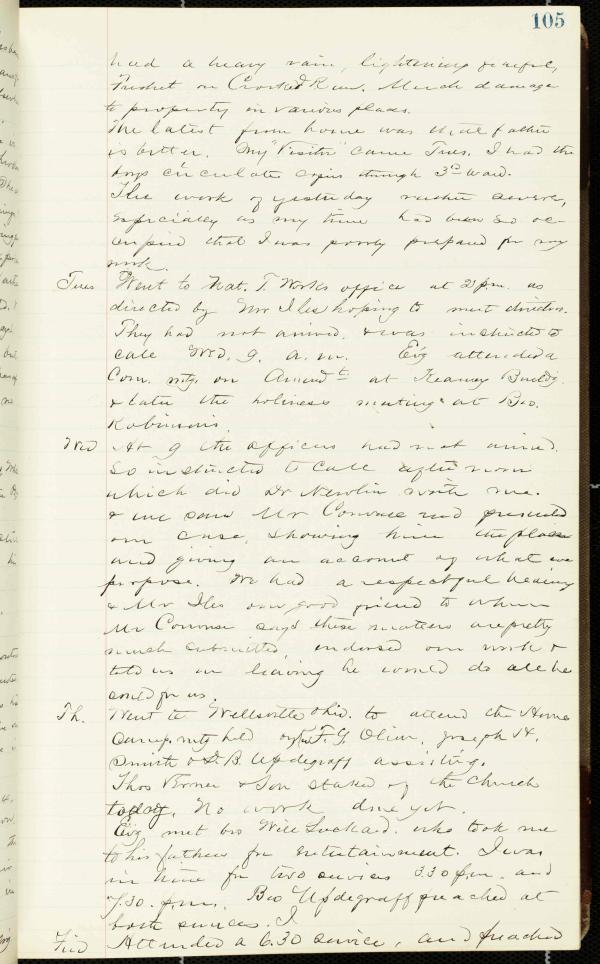 105
had a heavy rain, lightening fearful,
Freshet on Crooked Run. Much damage
to property in various places.
The latest from home was that father
is better. My "Visitor" came Tues. I had the
boys circulate copies through 3rd ward.
The work of yesterday rather severe,
especially as my time had been so oc-
cupied that I was poorly prepared for my
work.
Tues Went to Nat. T. Works office at 2 pm. as
directed by Mr Iles hoping to meet directors.
They had not arrived. & was instructed to
call Wed. 9. a. m. Ev'g attended a
Com. mtg. on Amend't at Kearney Build'g.
& later the holiness meeting at Bro.
Robinson's.
Wed At 9 the officers had not arrived.
So instructed to call afternoon
which did Dr Newlin with me.
& we saw Mr Converse and presented
our case, showing him the plans
and giving an account of what we
purpose. We had a respectful hearing
& Mr. Iles our good friend to whom
Mr Converse says these matters are pretty
much submitted, endorsed our work &
told us on leaving he would do all he
could for us.
Th. Went to Wellsville Ohio. to attend the Home
Camp mtg held by F. G. Oliver, Joseph H.
Smith & D. B. Updegraff assisting.
Thos Verner & Son staked off the Church
today. No work done yet.
Ev'g met bro Will Lockard. who took me
to his fathers for entertainment. I was
in time for two services 3.30 p.m. and
7.30. p.m. Bro Updegraff preached at
both services. I
Frid Attended a 6.30 service, and preached